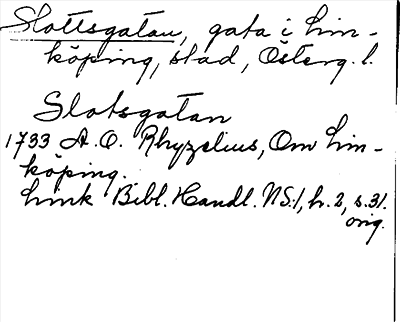 Slottsgatan, gata i Lin-
köping, stad, Österg. l.
Slotsgatan
1733 A. O. Rhyzelius, Om Lin-
köping.
Link Bibl. Handl. NS. 1, h. 2, s. 31.
orig.